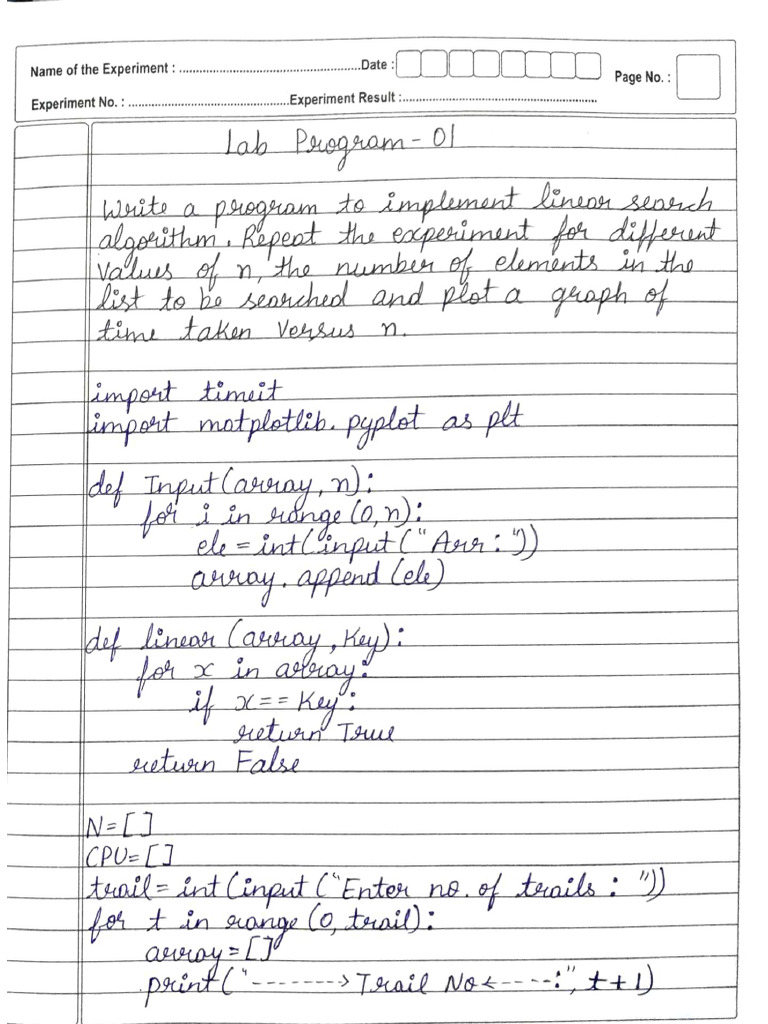 Name of the Experiment : ............................................................Date :
Page No. :
Experiment No. : ......................................................Experiment Result :..................................................................
Lab Program - 01
Write a program to implement linear search
algorithm. Repeat the experiment for different
values of n, the number of elements in the
list to be searched and plot a graph of
time taken versus n.
import timeit
import matplotlib.pyplot as plt
def Input(array, n):
for i in range (0, n):
ele = int(input("Arr : "))
array.append(ele)
def linear (array, Key):
for x in array:
if x == Key:
return True
return False
N = []
CPU = []
trail = int (input ("Enter no. of trails : "))
for t in range (0, trail):
array = []
print("-------> Trail No <----:", t + 1)